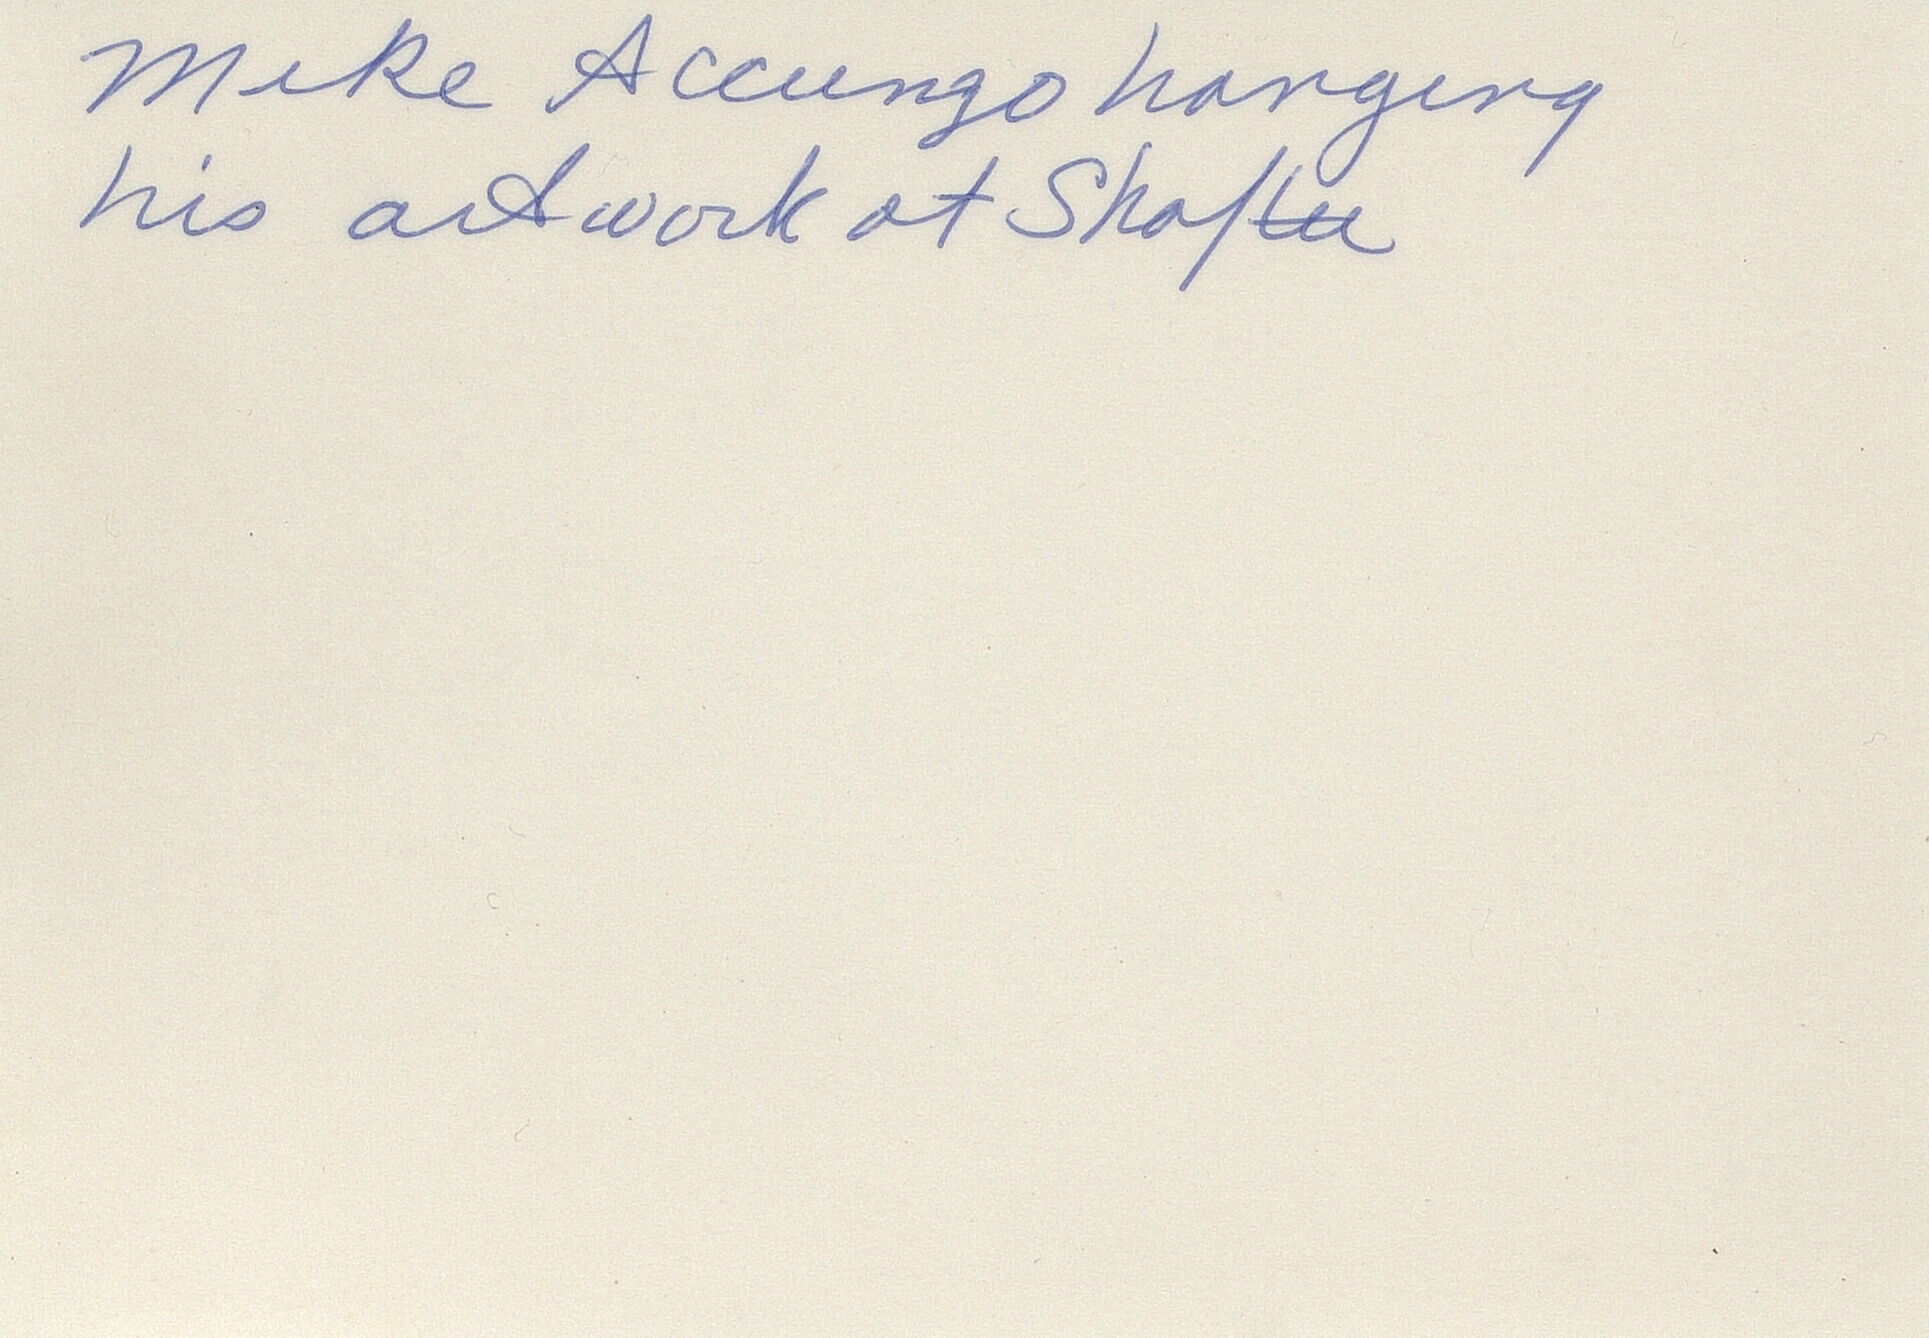 Mike Accungo hanging
his artwork at Shafter